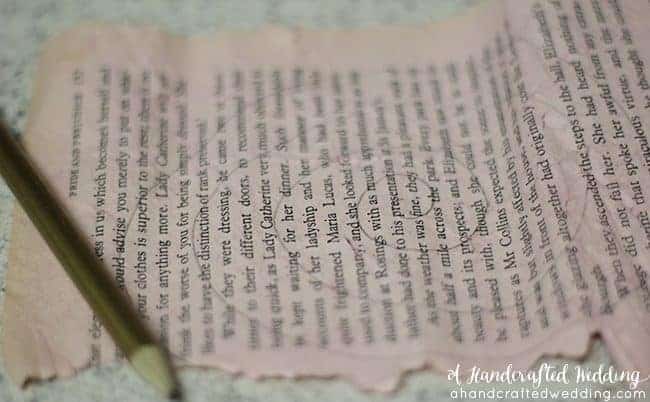 PRIDE AND PREJUDICE
in us which becomes herself and
would advise you merely to put on
your clothes is superior to the rest, there is no
for anything more. Lady Catherine will not
think the worse of you for being simply dressed. She
likes to have the distinction of rank preserved.'
While they were dressing, he came two or three
times to their different doors, to recommend
being quick, as Lady Catherine very much objected to
be kept waiting for her dinner. Such formidable
accounts of her ladyship and her manner of living
quite frightened Maria Lucas, who had been little
used to company, and she looked forward to her
duction at Rosings with as much apprehension as her
father had done to his presentation at St James's.
As the weather was fine, they had a pleasant walk of
about half a mile across the park. Every park has its
beauty and its prospects; and Elizabeth saw much to
be pleased with, though she could not be in such
raptures as Mr Collins expected the scene
and was but slightly affected by his enumeration
windows in front of the house, and his
the glazing altogether had originally cost
When they ascended the steps to the hall, Elizabeth's
did not fail her. She had heard nothing
that spoke her awful from any
virtue, and the
she thought she
A Handcrafted Wedding
ahandcraftedwedding.com